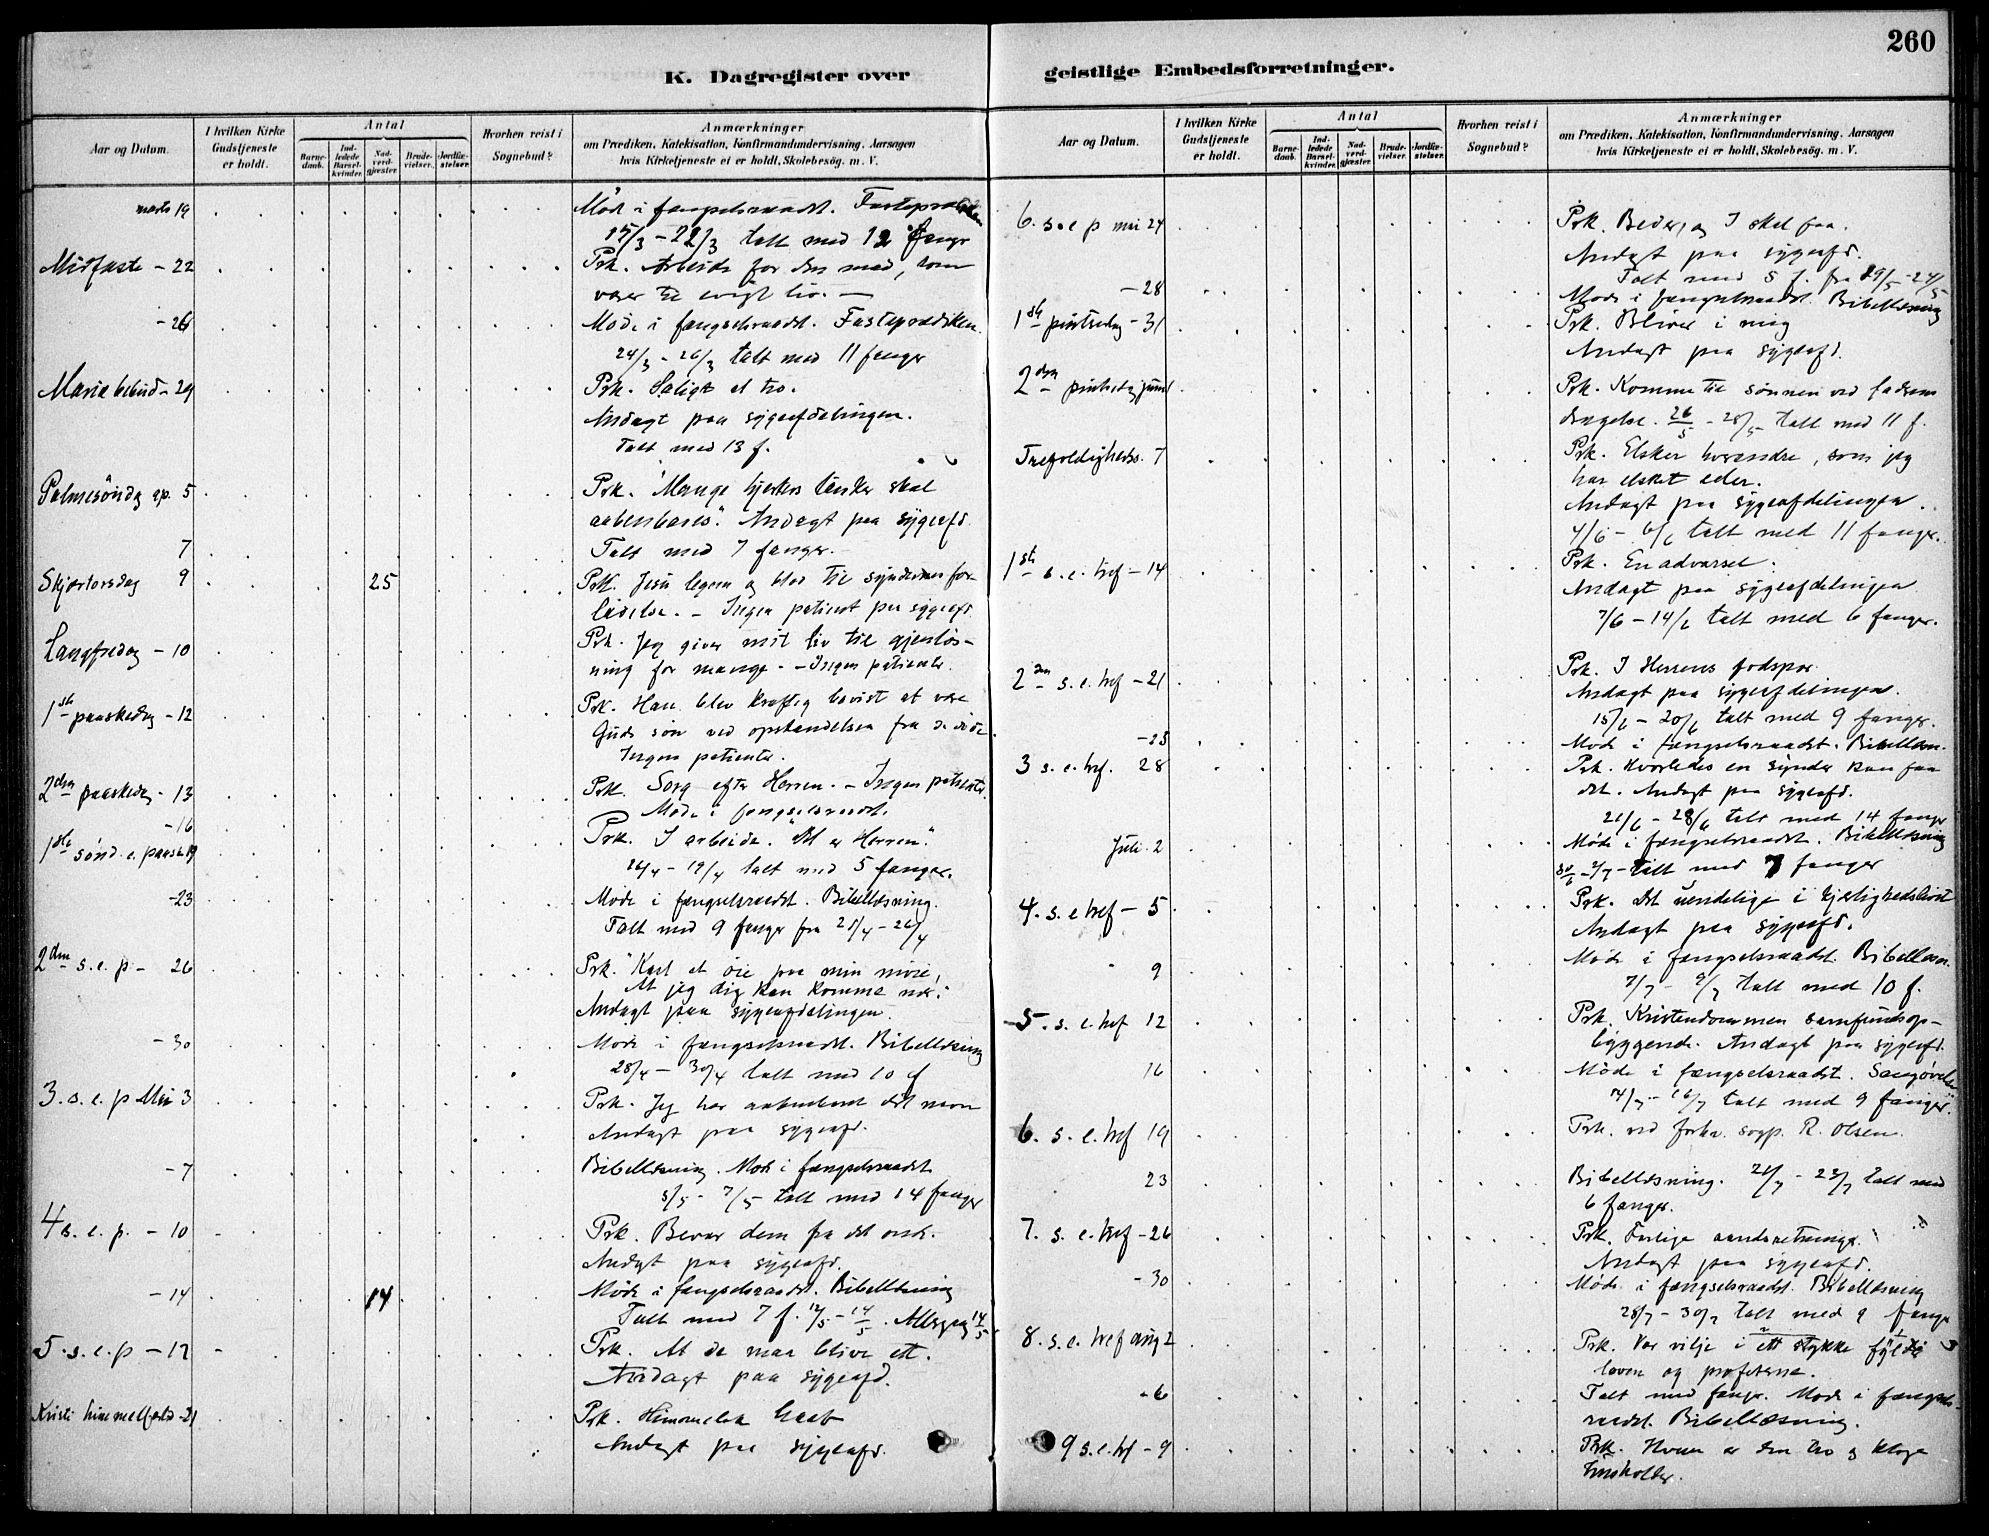 260
K. Dagregister over geistlige Embedsforretninger.
Aar og Datum.
I hvilken Kirke Gudstjeneste er holdt.
Antal
Barnedaab.
Indledede Barselkvinder.
Nadverdgjæster.
Brudevielser.
Jordfæstelser.
Hvorhen reist i Sognebud?
Anmærkninger
om Prædiken, Katekisation, Konfirmandundervisning, Aarsagen
hvis Kirketjeneste ei er holdt, Skolebesög. m. V.
marts 19 Møde i fængselsraadet. Fasteprædiken
15/3 - 22/3 talt med 12 fange
Midfaste - 22 Prk. Arbeide for den mad, som
varer til evigt liv. -
- 26 Møde i fængselsraadet. Fasteprædiken.
24/3 - 26/3 talt med 11 fanger
Maria bebud - 29 Prk. Saligt at tro.
Andagt paa sygeafdelingen.
Talt med 13 f.
Palmesöndag ap. 5 Prk. "Mange hjerters tanker skal
aabenbares". Andagt paa sygeafd.
7 Talt med 7 fanger.
Skjærtorsdag 9 25 Prk. Jesu legem og blod til syndernes for-
ladelse. - Ingen patient paa sygeafd.
Langfredag - 10 Prk. Jeg giver mit liv til gjenløs-
ning for mange. - Ingen patienter.
1ste paaskedag - 12 Prk. Han blev kraftig bevist at være
Guds søn ved opstandelsen fra de døde.
Ingen patienter.
2den paaskedag - 13 Prk. Sorg efter Herren. - Ingen patienter.
- 16 Møde i fængselsraadet.
1ste sönd. e. paaske 19 Prk. I arbeide. "Det er Herren".
talt med 5 fanger.
- 23 Møde i fængselsraadet. Bibellæsning.
Talt med 9 fange fra 21/4 - 26/4
2den s. e. p - 26 Prk. "Kast et øie paa min møie,
At jeg dig kan komme nær."
Andagt paa sygeafdelingen.
- 30 Møde i fængselsraadet. Bibellæsning
28/4 - 30/4 talt med 10 f
3. s. e. p Mai 3 Prk. Jeg har aabenbaret dit navn
Andagt paa sygeafd.
- 7 Bibellæsning. Møde i fængselsraadet
5/5 - 7/5 talt med 14 fanger
4 s. e. p. - 10 Prk. Bevar dem fra det onde.
Andagt paa sygeafd.
- 14 14 Møde i fængselsraadet. Bibellæsning
Talt med 7 f. 12/5 - 14/5. Altergang 14/5
5. s. e. p - 17 Prk. At de maa blive ett.
Andagt paa sygeafd.
Kristi himmelfartsd - 21 Prk. Himmelsk haab
Andagt paa sygeafd.
6. s. e p mai 24 Prk. Beder, og I skal faa.
Andagt paa sygeafd.
Talt med 5 f. fra 19/5 - 24/5
- 28 Møde i fængselsraadet. Bibellæsning
1ste pintsedag - 31 Prk. Bliver i mig
Andagt paa sygeafd.
2den pintsedag juni 1 Prk. Komme til sønnen ved faderens
dragelse. 26/5 - 28/5 talt med 11 f.
Trefoldigheds. 7 Prk. Elsker hverandre, som jeg
har elsket eder.
Andagt paa sygeafdelingen.
4/6 - 6/6 talt med 11 fanger.
1ste s. e. tref - 14 Prk. En advarsel.
Andagt paa sygeafdelingen
7/6 - 14/6 talt med 6 fanger.
2den s. e. tref - 21 Prk. I Herrens fodspor.
Andagt paa sygeafdelingen.
15/6 - 20/6 talt med 9 fanger.
- 25 Møde i fængselsraadet. Bibellæsn.
3 s. e. tref. 28 Prk. Hvorledes en synder kan faa
det. Andagt paa sygeafd.
21/6 - 28/6 talt med 14 fange
Juli 2 Møde i fængselsraadet. Bibellæsning
30/6 - 2/7 - talt med 7 fanger
4. s. e tref - 5 Prk. Det uendelige i kjærlighedslivet
Andagt paa sygeafd.
9 Møde i fængselsraadet. Bibellæsn.
7/7 - 9/7 talt med 10 f.
5. s. e. tref 12 Prk. Kristendommen samfundsop-
byggende. Andagt paa sygeafd.
16 Møde i fængselsraadet. Sangøvelse
14/7 - 16/7 talt med 9 fanger.
6. s. e. tref 19 Prk. ved forhv. sogp. R. Olsen.
23 Bibellæsning. 21/7 - 23/7 talt med
6 fanger.
7. s. e. tref - 26 Prk. Farlige aandsretninger
Andagt paa sygeafd.
- 30 Møde i fængselsraadet. Bibellæsning
28/7 - 30/7 talt med 9 fange
8. s. e. tref aug 2 Prk. Vor vilje i ett stykke fylde
loven og profeterne.
- 6 Talt med fange. Møde i fængsels-
raadet. Bibellæsning.
9 s. e. tref - 9 Prk. Hvem er den tro og kloge
husholder.